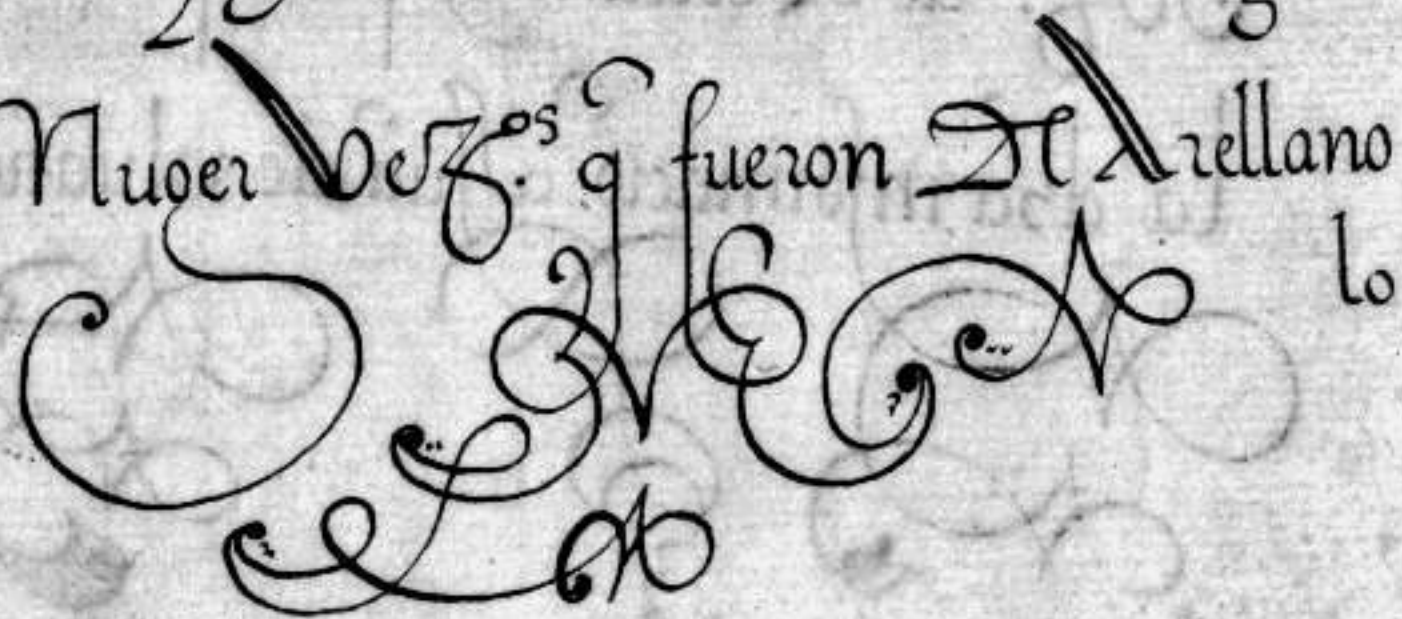 Muger Vezos q fueron De Arellano
lo